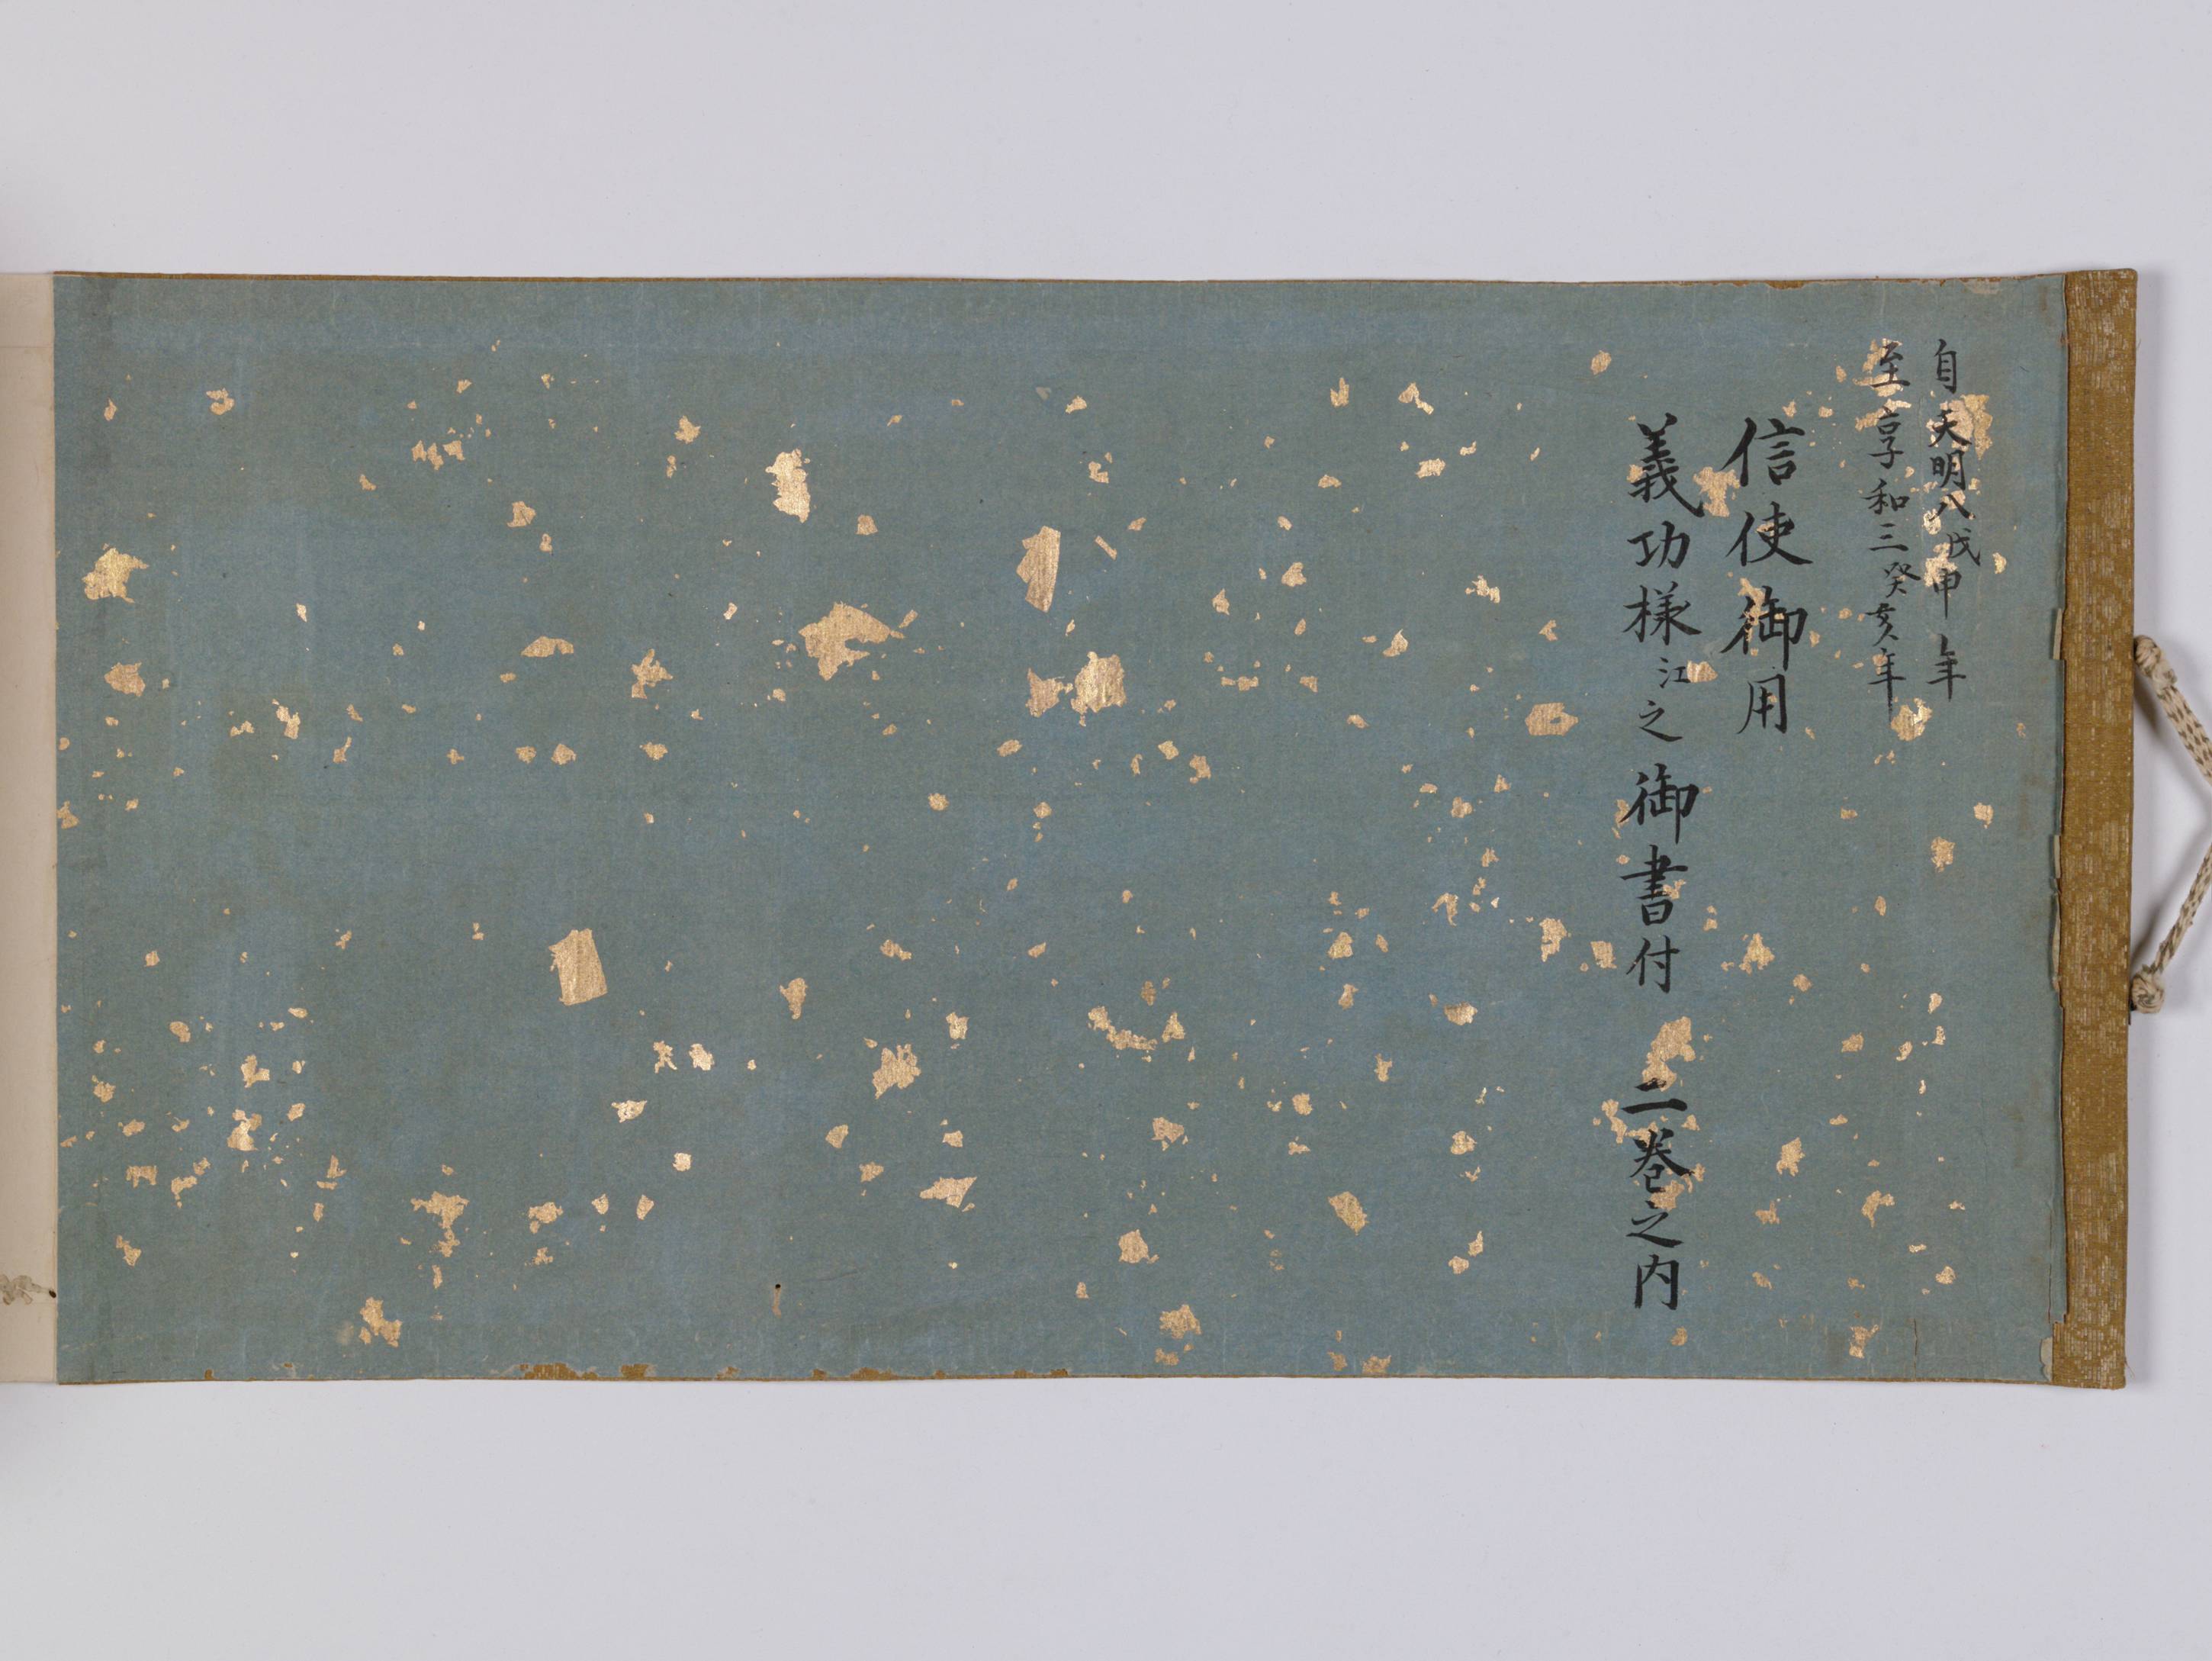 自天明八戊申年
至享和三癸亥年
信使御用
義功様江之御書付 二巻之内